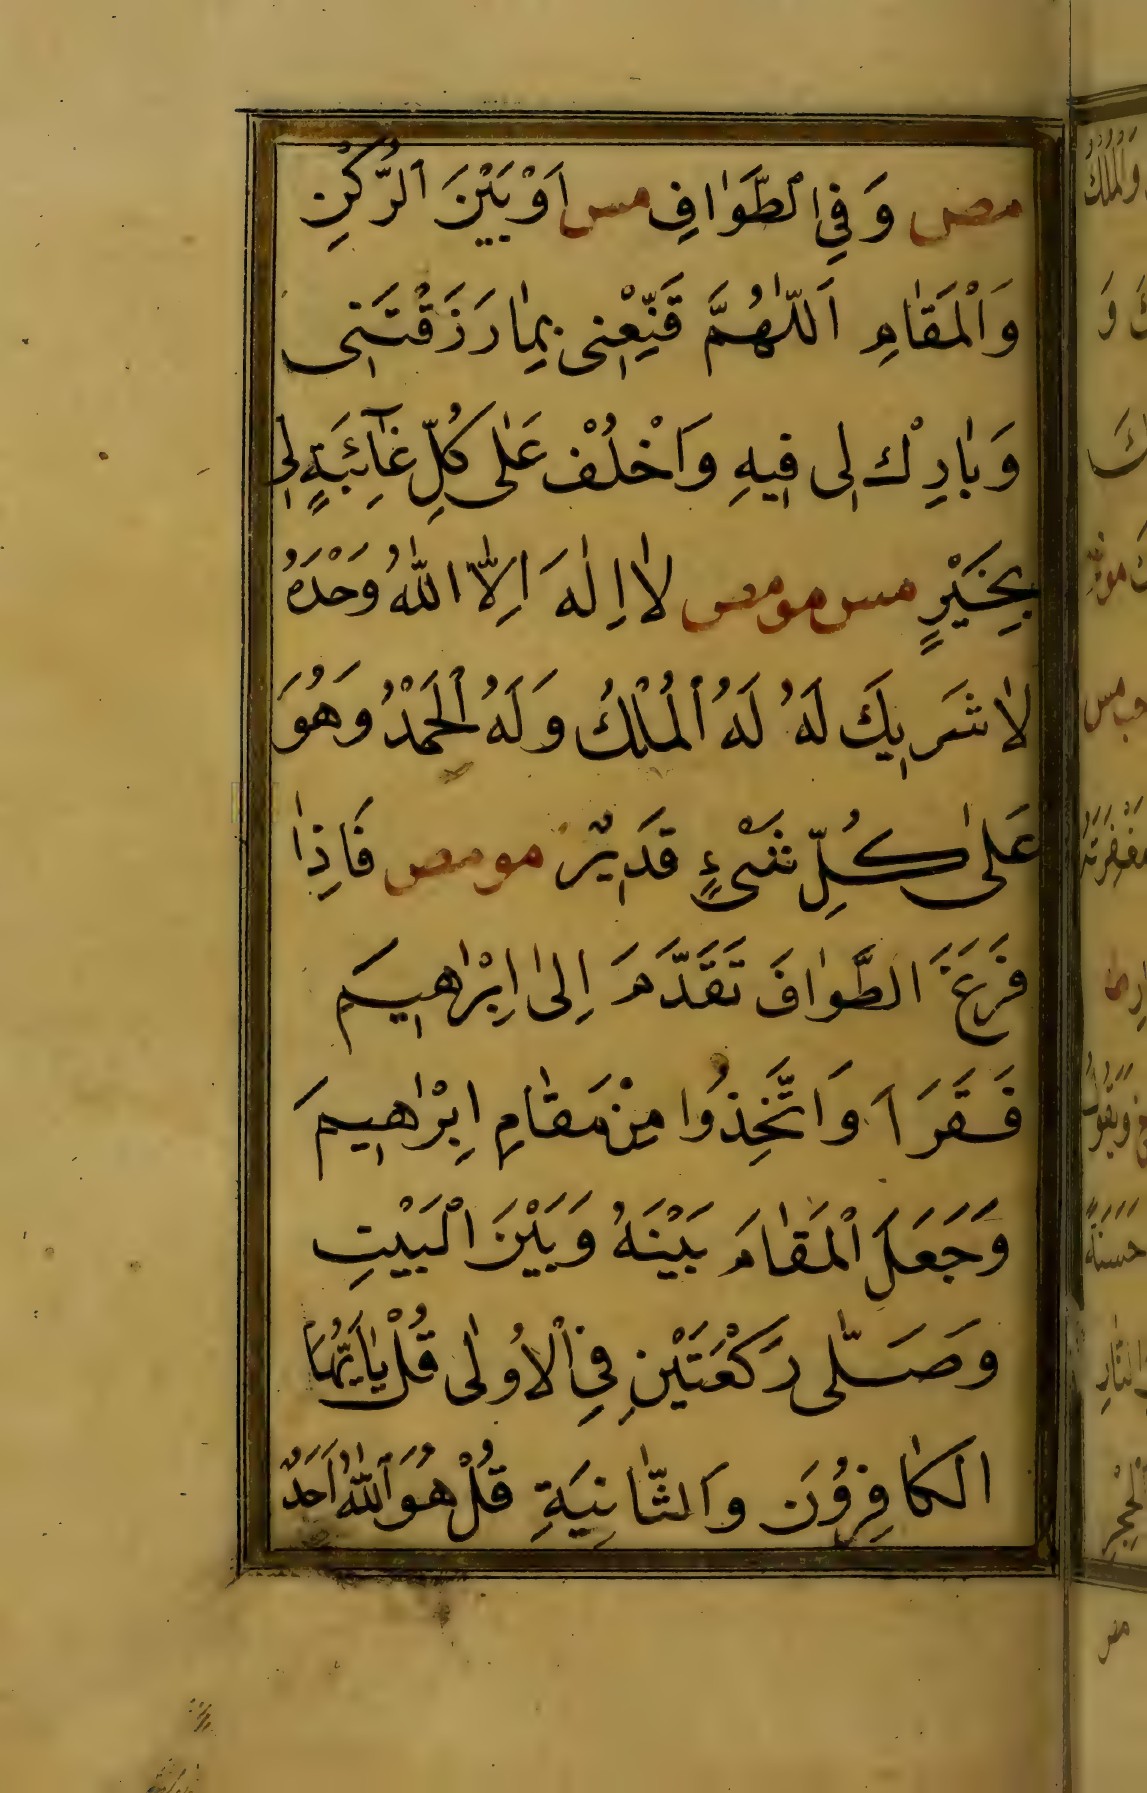 مص وَفِي الطَّوَافِ مس اَوْ بَيْنَ الرُّكْنِ
وَالْمَقَامِ اَللّٰهُمَّ قَنِّعْنِى بِمَا رَزَقْتَنِى
وَبَارِكْ لِى فِيهِ وَاخْلُفْ عَلٰى كُلِّ غَائِبَةٍ لِى
بِخَيْرٍ مس مو مص لَا اِلٰهَ اِلَّا اللّٰهُ وَحْدَهُ
لَا شَرِيكَ لَهُ لَهُ الْمُلْكُ وَلَهُ الْحَمْدُ وَهُوَ
عَلٰى كُلِّ شَىْءٍ قَدِيرٌ مو مص فَاِذَا
فَرَغَ الطَّوَافَ تَقَدَّمَ اِلٰى اِبْرٰهِيمَ
فَقَرَاَ وَاتَّخِذُوا مِنْ مَقَامِ اِبْرٰهِيمَ
وَجَعَلَ الْمَقَامَ بَيْنَهُ وَبَيْنَ الْبَيْتِ
وَصَلّٰى رَكْعَتَيْنِ فِي الْاُولٰى قُلْ يَا اَيُّهَا
الْكَافِرُونَ وَالثَّانِيَةِ قُلْ هُوَ اللّٰهُ اَحَدٌ